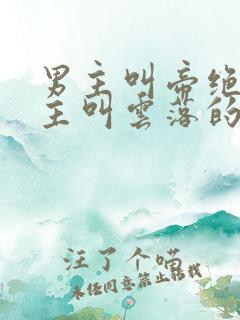 男主叫帝绝
主叫雲落的
汪了个喵
未经同意禁止转载